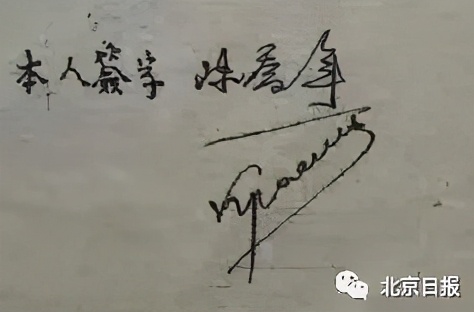 本人簽字 陈乔年
Красин
北京日报